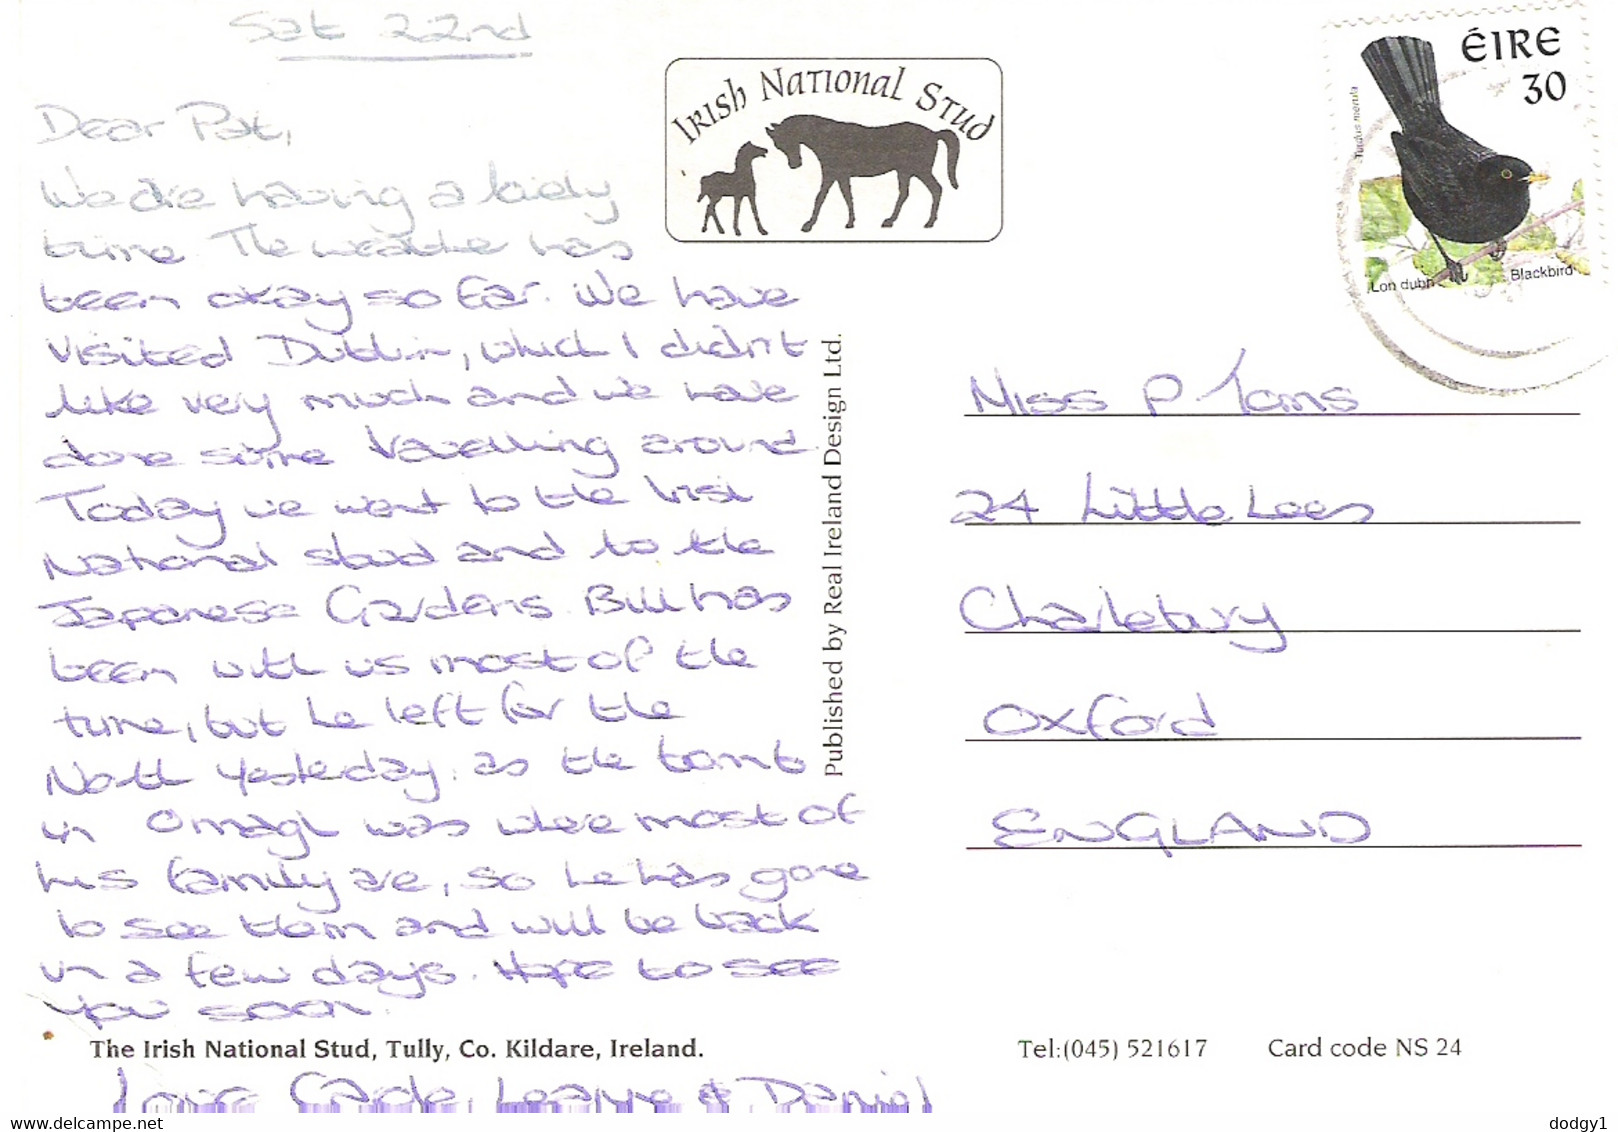 Sat 22nd
Dear Pat,
We are having a lovely
time. The weather has
been okay so far. We have
visited Dublin, which I didn't
like very much and we have
done some travelling around.
Today we went to the Irish
National stud and to the
Japanese Gardens. Bill has
been with us most of the
time, but he left for the
North yesterday. as the bomb
in Omagh was where most of
his family are, so he has gone
to see them and will be back
in a few days. Hope to see
you soon.
Love Carole, Leanne & Daniel
The Irish National Stud, Tully, Co. Kildare, Ireland.
Irish National Stud
Published by Real Ireland Design Ltd.
ÉIRE
30
Turdus merula
Lon dubh
Blackbird
Miss P Toms
24 Little Lees
Charlebury
Oxford
ENGLAND
Tel:(045) 521617
Card code NS 24
delcampe.net
dodgy1